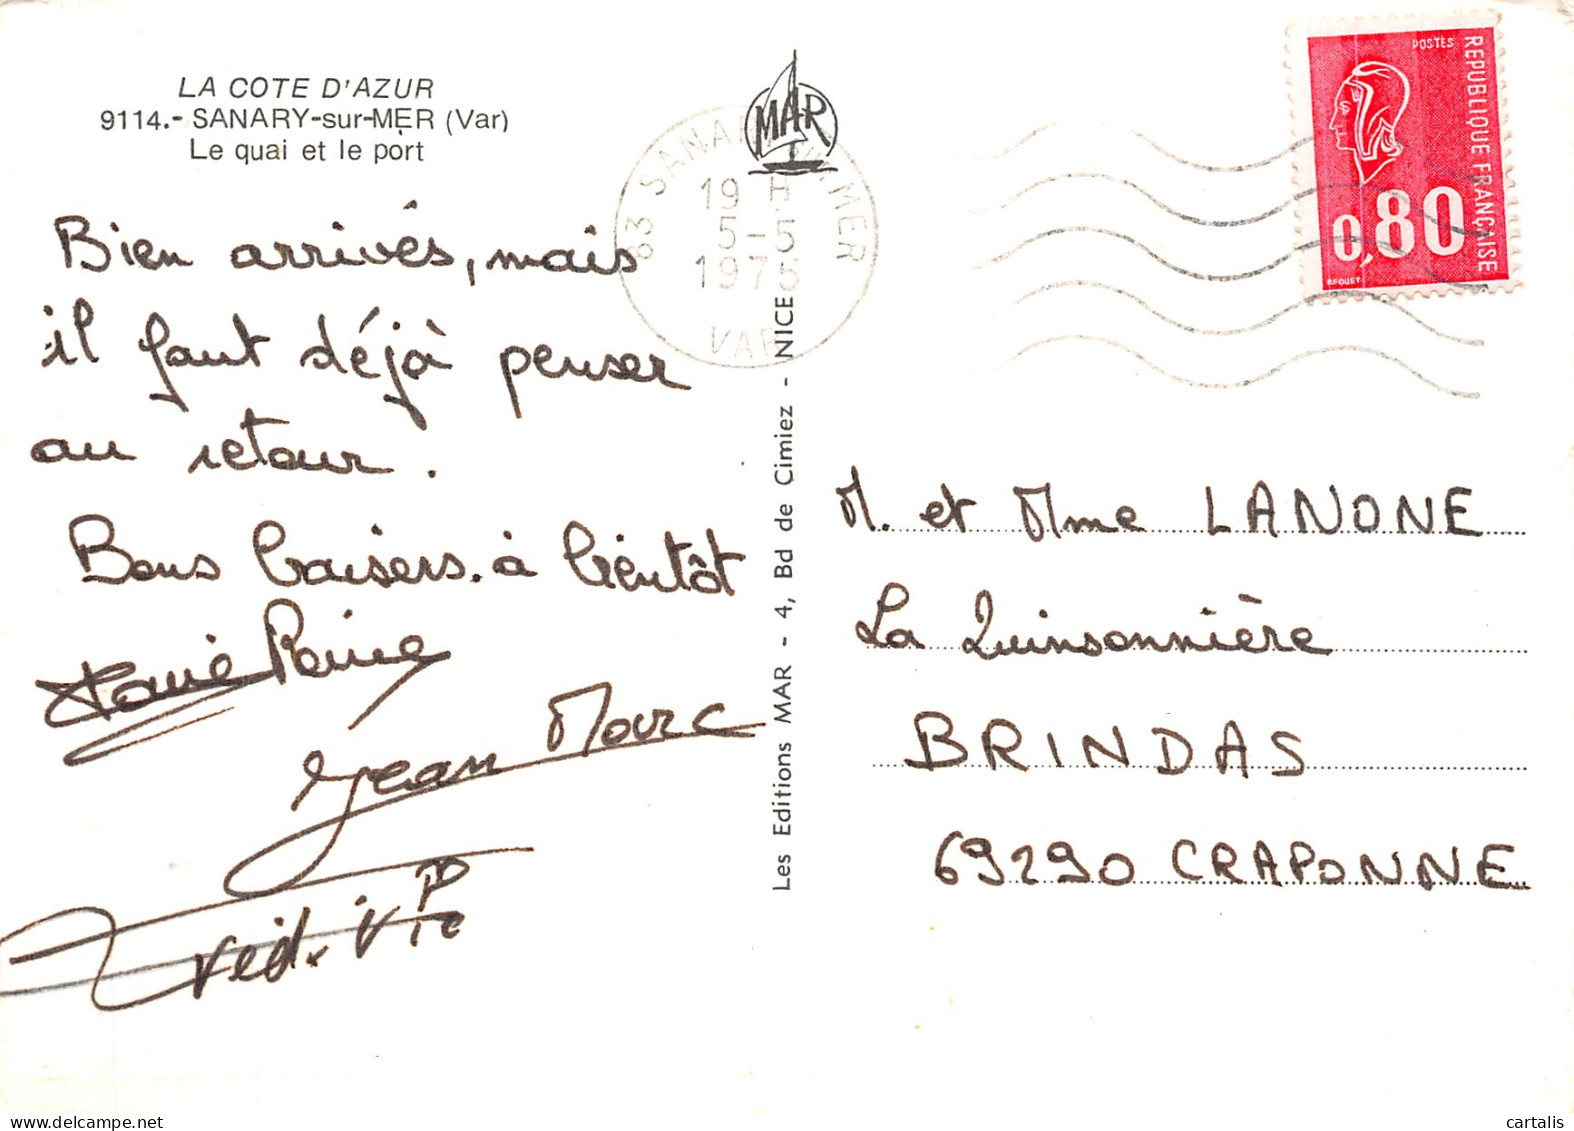 LA COTE D'AZUR
9114.- SANARY-sur-MER (Var)
Le quai et le port
Bien arrivés, mais
il faut déjà penser
au retour.
Bons baisers. à bientôt
Marie Reine
Jean Marc
MAR
83 SANARY S/MER
19 H
5-5
1975
VAR
Les Editions MAR - 4, Bd de Cimiez - NICE
POSTES
REPUBLIQUE FRANÇAISE
0,80
BEQUET
M. et Mme LANONE
La Quinsonnière
BRINDAS
69290 CRAPONNE
delcampe.net
cartalis